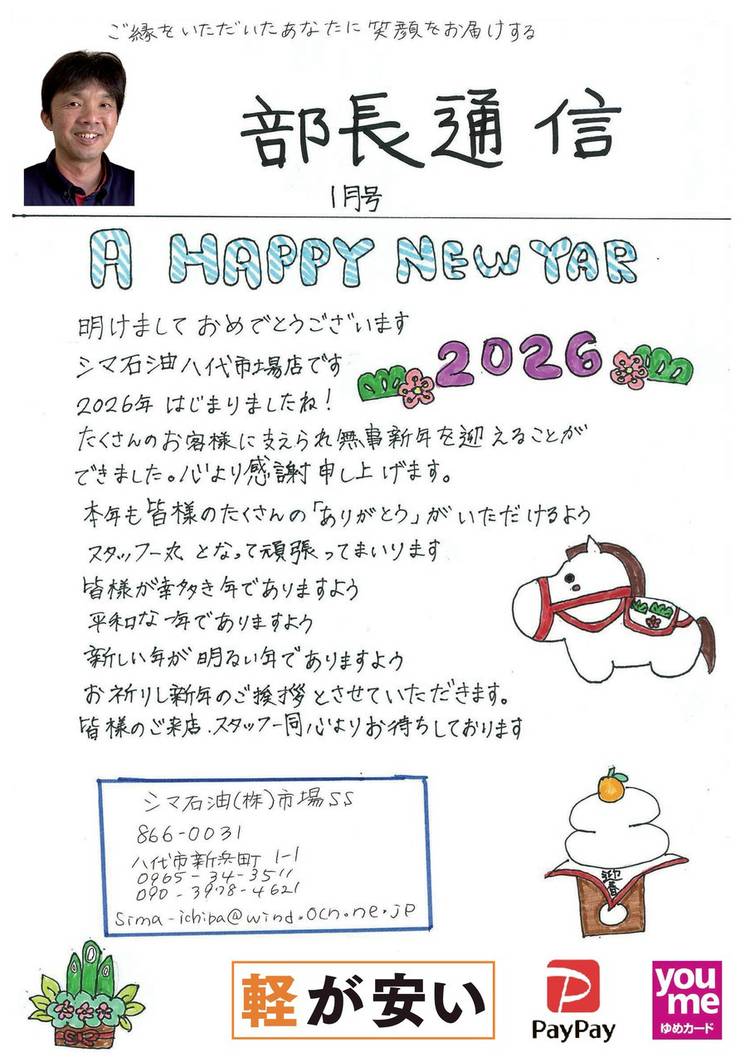 ご縁をいただいたあなたに笑顔をお届けする
部長通信
1月号
A HAPPY NEW YAR
明けましておめでとうございます
シマ石油八代市場店です
2026
2026年 はじまりましたね!
たくさんのお客様に支えられ無事新年を迎えることが
できました。心より感謝申し上げます。
本年も皆様のたくさんの「ありがとう」がいただけるよう
スタッフ一丸となって頑張ってまいります
皆様が幸多き年でありますよう
平和な一年でありますよう
新しい年が明るい年でありますよう
お祈りし新年のご挨拶とさせていただきます。
皆様のご来店.スタッフ一同心よりお待ちしております
シマ石油(株)市場SS
866-0031
八代市新浜町 1-1
0965-34-3511
090-3978-4621
sima-ichiba@wind.ocn.ne.jp
迎春
軽が安い
PayPay
you
me
ゆめカード